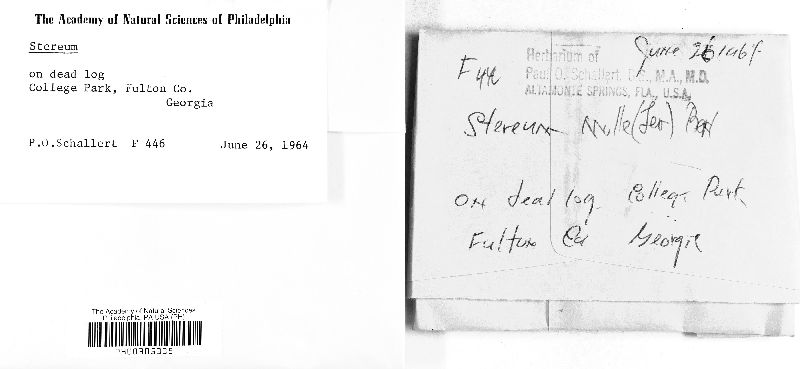 The Academy of Natural Sciences of Philadelphia
Stereum
on dead log
College Park, Fulton Co.
Georgia
P.O.Schallert F 446 June 26, 1964
The Academy of Natural Sciences
Philadelphia, PA USA (PH)
June 26 1964
Herbarium of
Paul O. Schallert, M.A., M.D.
ALTAMONTE SPRINGS, FLA., U.S.A.
F 446
Stereum
On dead log College Park
Fulton Co Georgia